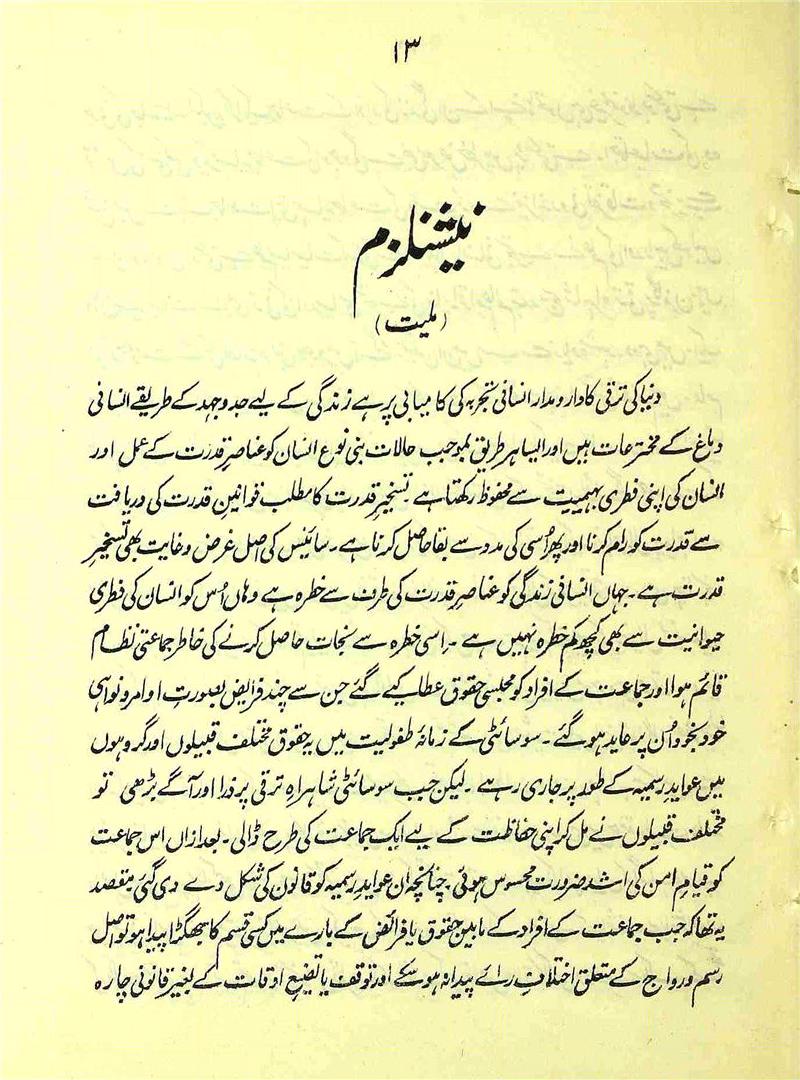 ۱۳
نیشنلزم
(ملیت)
دنیا کی ترقی کا دارومدار انسانی تجربہ کی کامیابی پر ہے زندگی کے لیے جدوجہد کے طریقے انسانی
دماغ کے مخترعات ہیں اور ایسا ہر طریق بموجب حالات بنی نوع انسان کو عناصرِ قدرت کے عمل اور
انسان کی اپنی فطری بہیمیت سے محفوظ رکھتا ہے۔ تسخیرِ قدرت کا مطلب قوانینِ قدرت کی دریافت
سے قدرت کو رام کرنا اور پھر اُسی کی مدد سے بقا حاصل کرنا ہے۔ سائنس کی اصل غرض و غایت بھی تسخیرِ
قدرت ہے۔ جہاں انسانی زندگی کو عناصرِ قدرت کی طرف سے خطرہ ہے وہاں اُس کو انسان کی فطری
حیوانیت سے بھی کچھ کم خطرہ نہیں ہے۔ اسی خطرہ سے نجات حاصل کرنے کی خاطر جماعتی نظام
قائم ہوا اور جماعت کے افراد کو مجلسی حقوق عطا کیے گئے جن سے چند فرایض بصورتِ اوامر و نواہی
خود بخود اُن پر عاید ہو گئے۔ سوسائٹی کے زمانۂ طفولیت میں یہ حقوق مختلف قبیلوں اور گروہوں
میں عوایدِ رسمیہ کے طور پر جاری رہے۔ لیکن جب سوسائٹی شاہراہِ ترقی پر ذرا اور آگے بڑھی تو
مختلف قبیلوں نے مل کر اپنی حفاظت کے لیے ایک جماعت کی طرح ڈالی۔ بعد ازاں اس جماعت
کو قیامِ امن کی اشد ضرورت محسوس ہوئی چنانچہ ان عوایدِ رسمیہ کو قانون کی شکل دے دی گئی مقصد
یہ تھا کہ جب جماعت کے افراد کے مابین حقوق یا فرائض کے بارے میں کسی قسم کا جھگڑا پیدا ہو تو اصل
رسم و رواج کے متعلق اختلافِ رائے پیدا نہ ہو سکے اور توقف یا تضیعِ اوقات کے بغیر قانونی چارہ